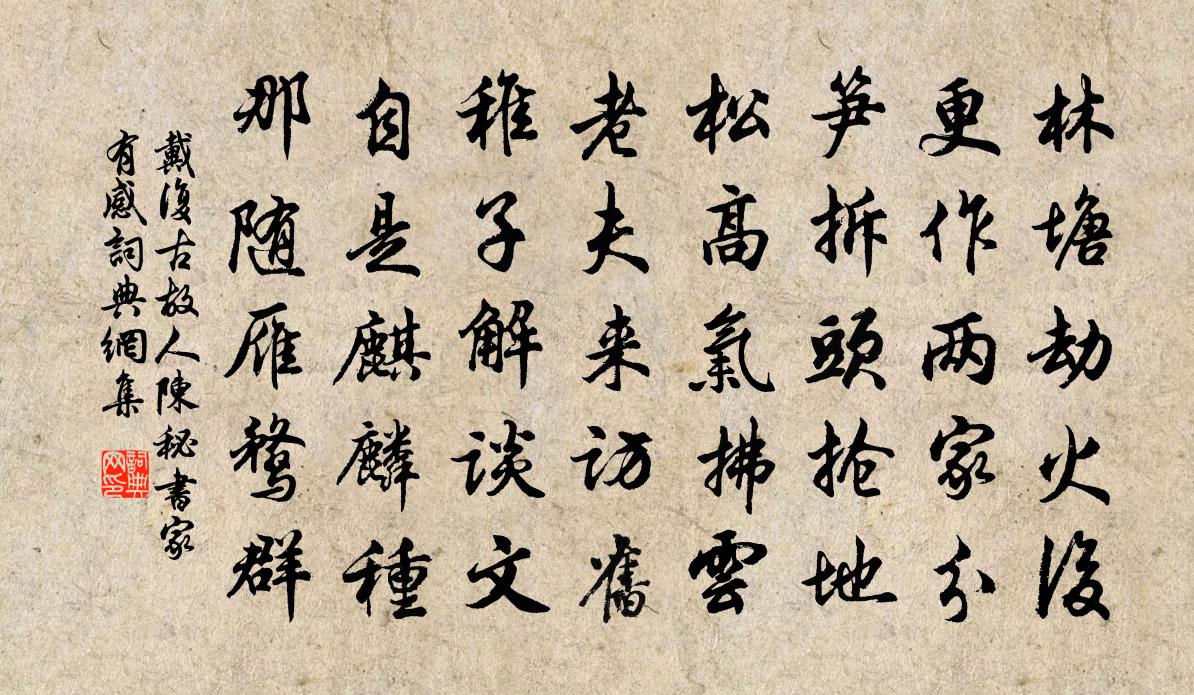 林塘劫火後
更作两家分
笋拆頭抢地
松高氣拂雲
老夫来访舊
稚子解谈文
自是麒麟種
那随雁鹜群
戴復古故人陳秘書家
有感詞典網集
詞典
网印